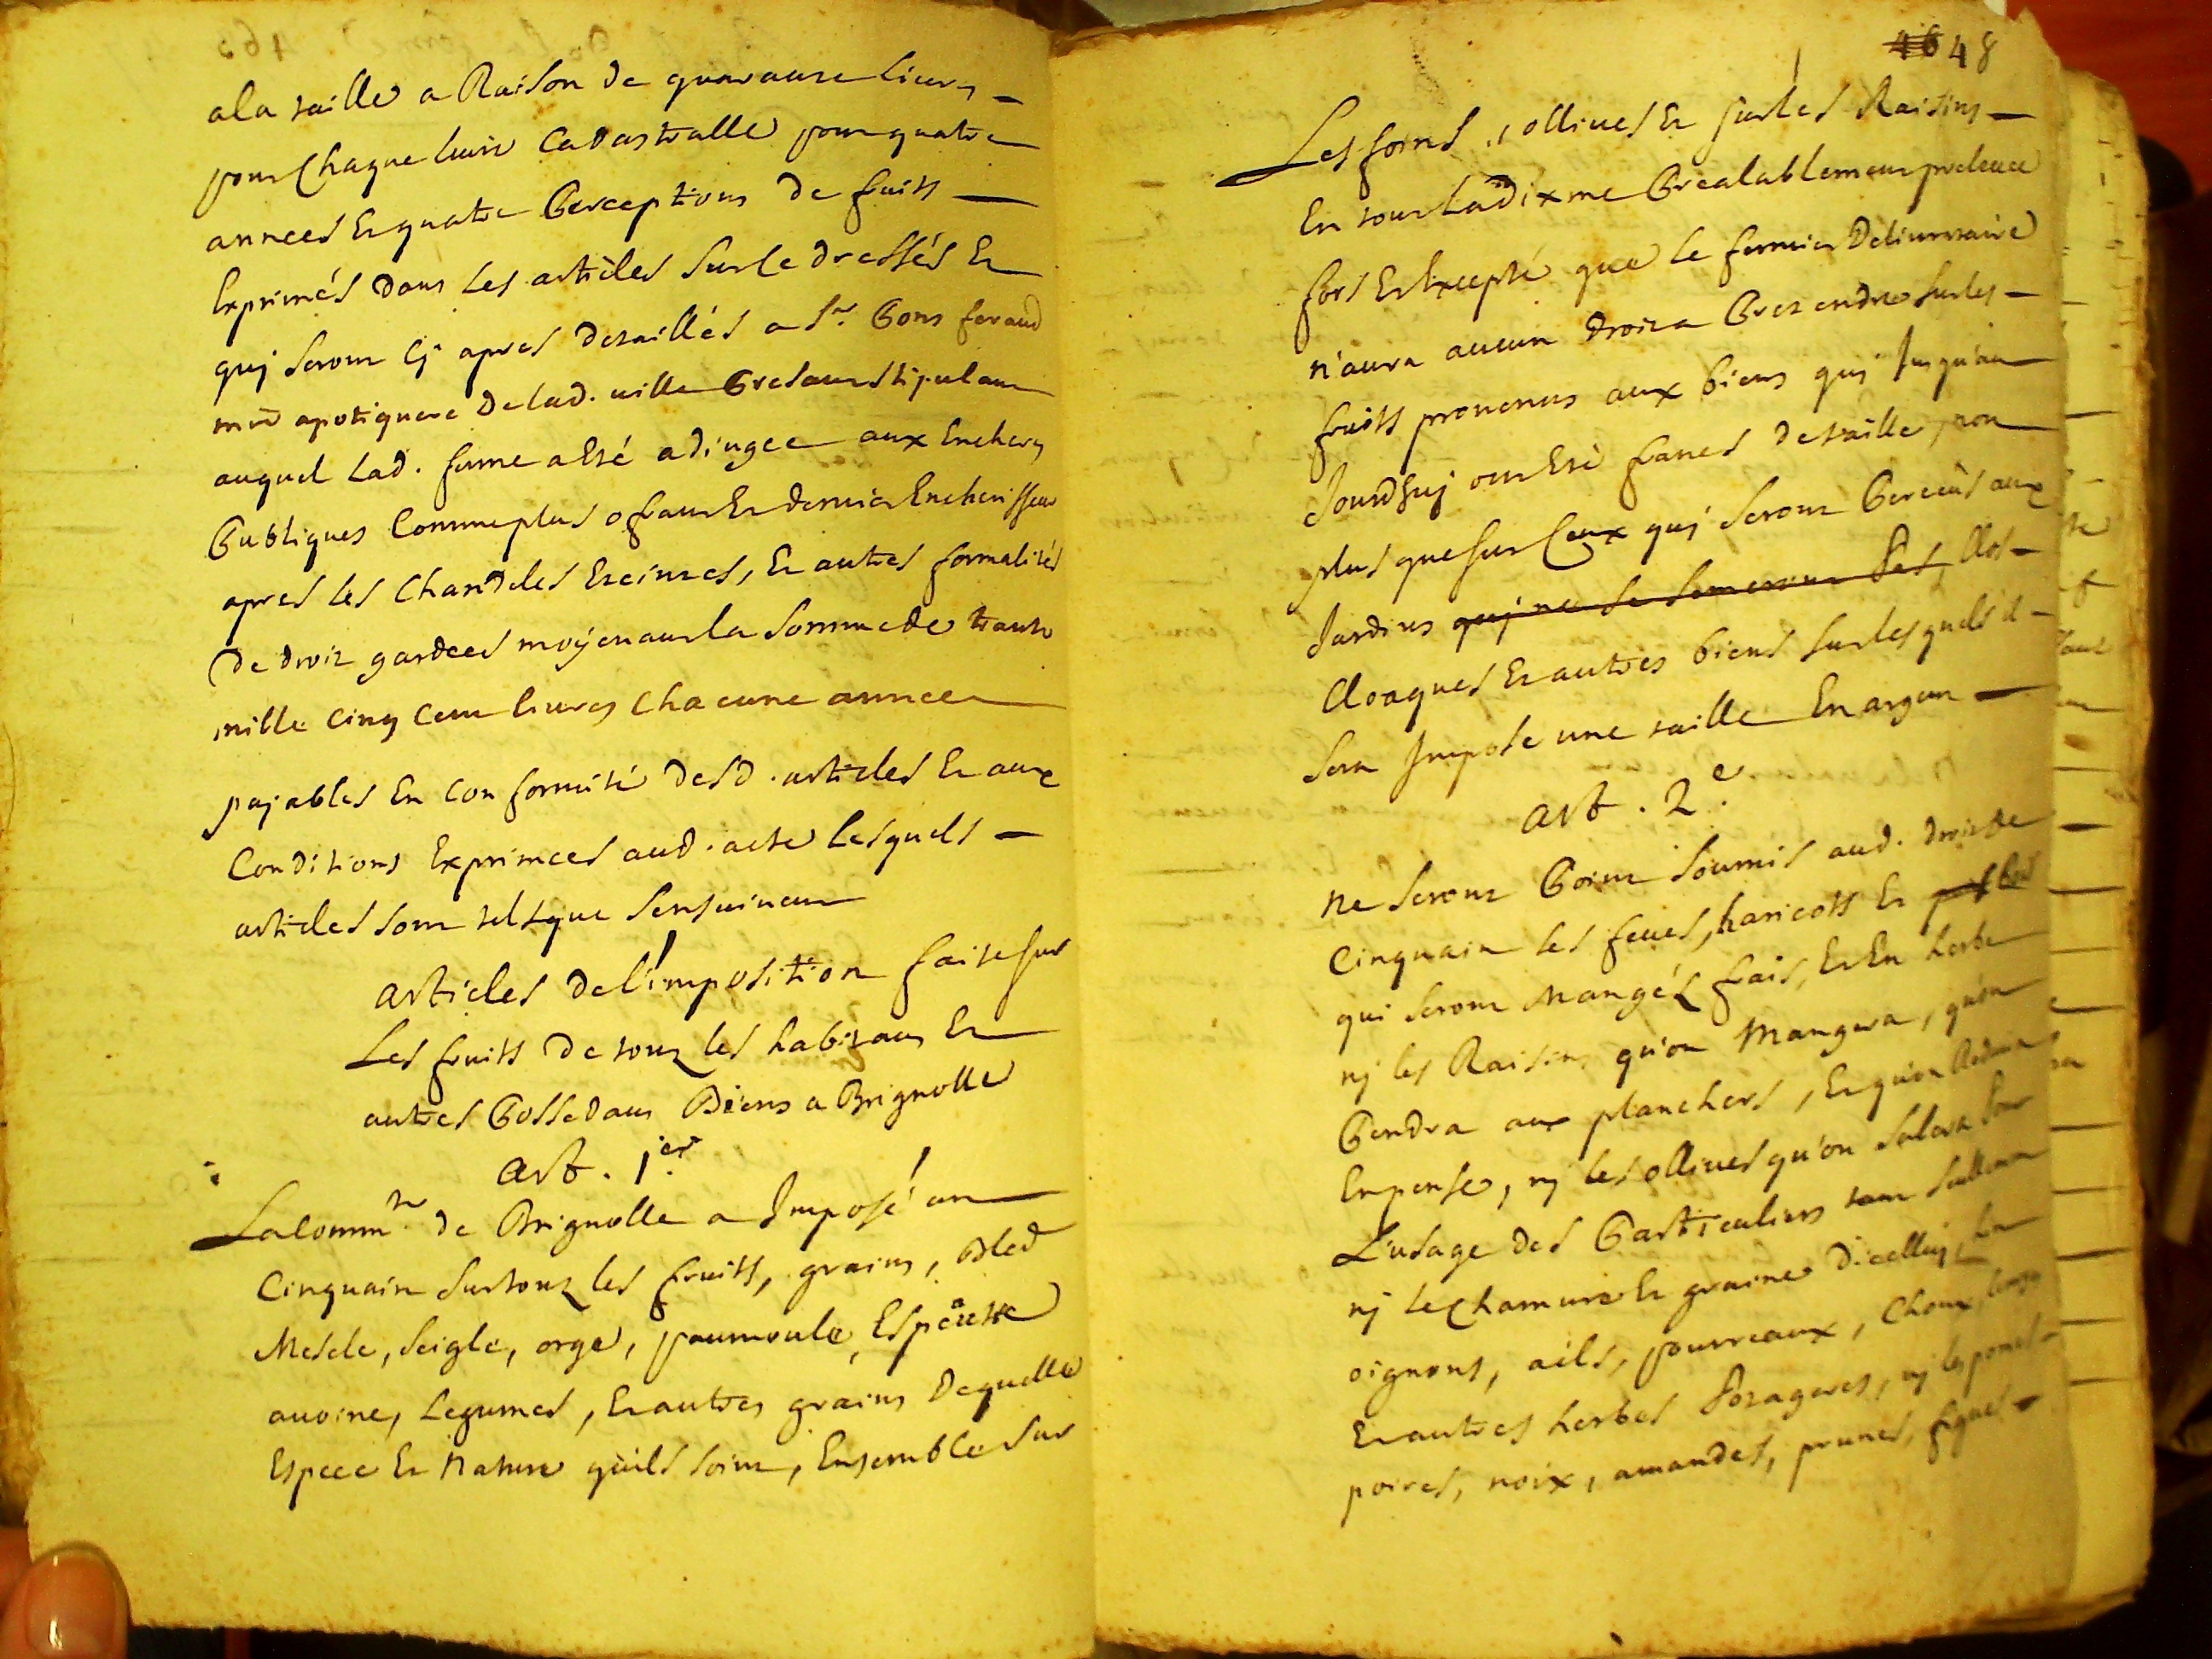 ala taille a Raison de quarante livres
pour Chaque livre Cadastralle pour quatre
années Et quatre Perceptions de fruits
Exprimés dans Les articles sur ce dressés Et
quj seront cj apres detaillés a Sr. Pons feraud
md apotiquere de lad. ville Present stipulant
auquel Lad. ferme a Eté adjugée aux Encheres
Publiques Comme plus ofrant Et dernier Encherisseur
apres les Chandeles Eteintes, Et autres formalités
de droit gardées moÿenant la Somme de trante
mille cinq cent livres Chacune année
payables En Conformité desd. articles Et aux
Conditions Exprimées aud. acte Lesquels
articles sont tels que sensuivent
articles de l'imposition faite sur
Les fruits de tous les habitans Et
autres Possedans Biens a Brignolle
Art. 1er.
La Commté de Brignolle a Imposé un
Cinquain sur tous les fruits, grains, Bled
Mescle, seigle, orge, paumoule, Espeaute
avoine, Legumes, Et autres grains de quelle
Espece Et Nature qu'ils soint, Ensemble sur
48
Les foins, ollives Et sur les Raisins
En tout La dixme Prealablement prelevée
fors Et Excepté que le fermier Delivrataire
n'aura aucun droit a Pretendre sur les
fruits provenus aux biens quj Jusqu'au
Jourdhuj ont Eté francs de taille, non
plus que sur Ceux quj seront Perceus aux
Jardins quj ne se semeront Pas, Clos
Cloaques Et autres biens sur les quels il
sera Imposé une taille En argent
Art. 2e.
Ne seront Point soumis aud. droit de
Cinquain les feves, haricots Et
qui seront Mangés frais, Et En herbe
nj les Raisins qu'on Mangera, qu'on
Pendra aux planchers, Et qu'on
En pense, nj les ollives qu'on salera Pour
L'usage des Particuliers tant seullement
nj le Chamvre Et graine d'icelluj, Les
oignons, ails, pourreaux, Choux,
Et autres herbes Potageres, nj les pomes
poires, noix, amandes, prunes, figues